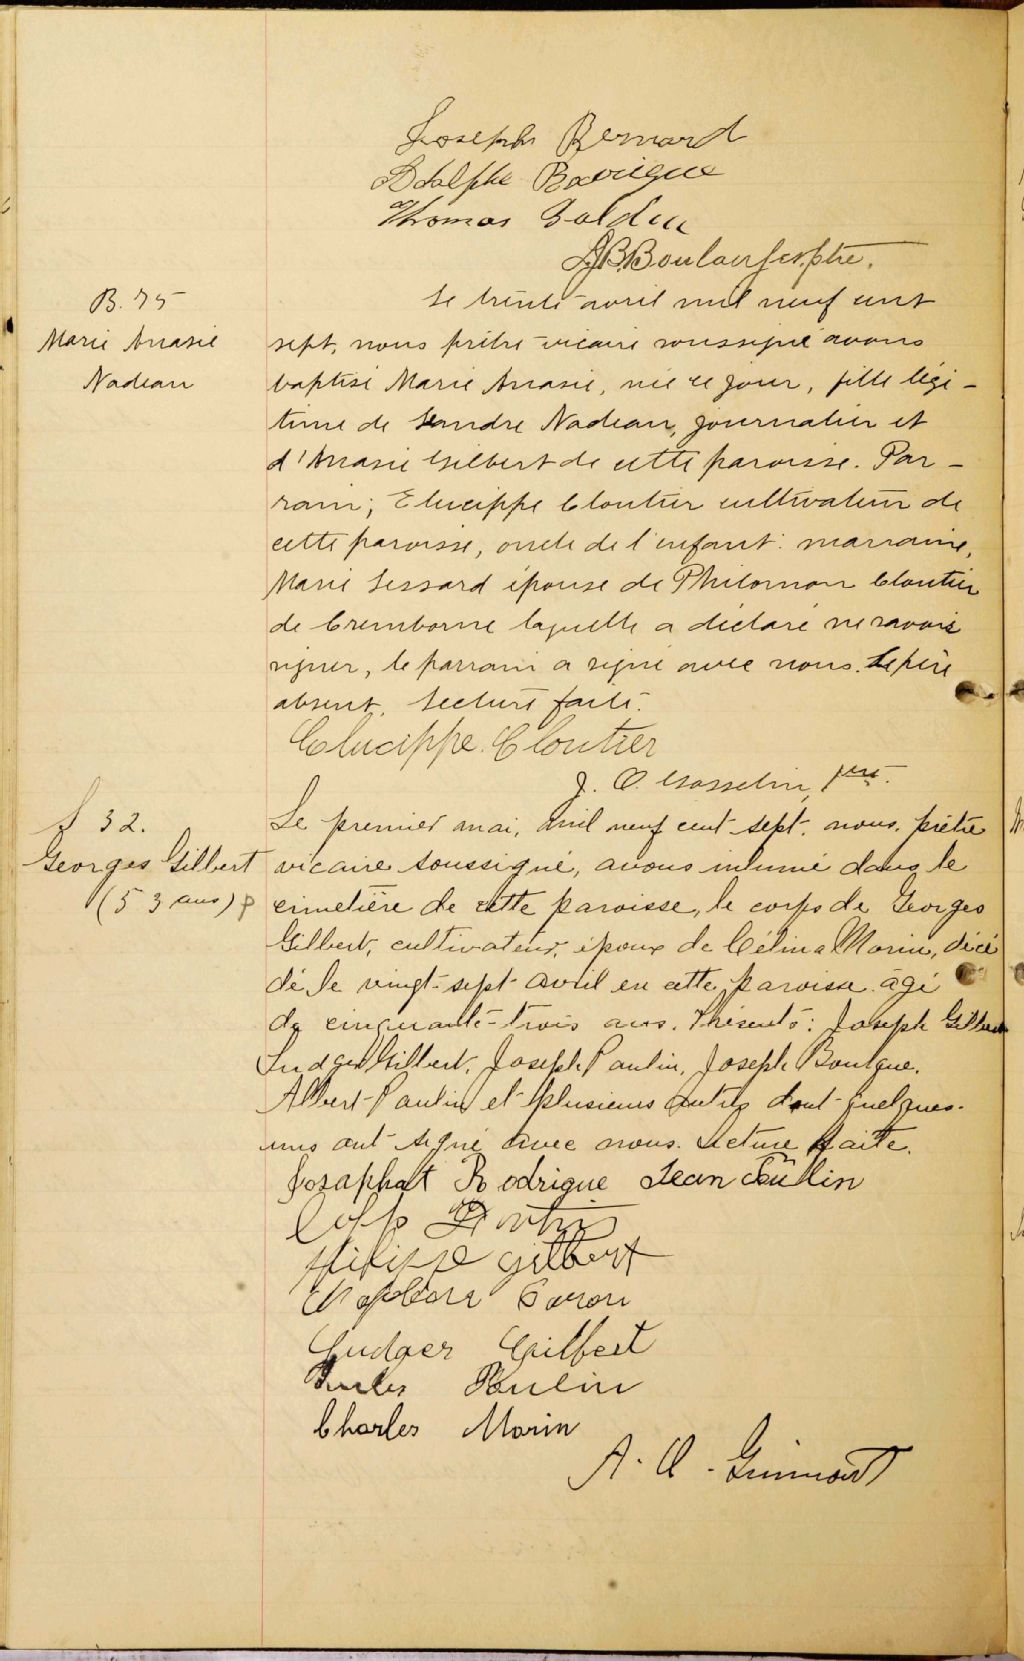 Joseph Bernard
Adolphe
Thomas
J.B. Boulanger, ptre.
B. 75
Marie Anasie
Nadeau
Le trente avril mil neuf cent
sept, nous prêtre vicaire soussigné avons
baptisé Marie Anasie, née ce jour, fille légi-
time de Léandre Nadeau, journalier et
d'Anasie Gilbert de cette paroisse. Par-
rain; Eleucippe Cloutier cultivateur de
cette paroisse, oncle de l'enfant: marraine,
Marie Lessard épouse de Philemon Cloutier
de laquelle a déclaré ne savoir
signer, le parrain a signé avec nous. Le père
absent. Lecture faite.
Eleucippe Cloutier
J. O. Gosselin, ptre.
S 32.
Georges Gilbert
(53 ans)
Le premier mai, mil neuf cent sept, nous, prêtre
vicaire soussigné, avons inhumé dans le
cimetière de cette paroisse, le corps de Georges
Gilbert, cultivateur, époux de Célina Morin, décé
dé le vingt-sept avril en cette paroisse âgé
de cinquante-trois ans. Présents: Joseph Gilbert
Ludger Gilbert, Joseph Poulin, Joseph
Albert Poulin et plusieurs autres dont quelques-
uns ont signé avec nous. Lecture faite.
Josaphat Rodrigue Jean Poulin
Philippe Gilbert
Napoléon Caron
Ludger Gilbert
Jules Poulin
Charles Morin
A. O. Guimont